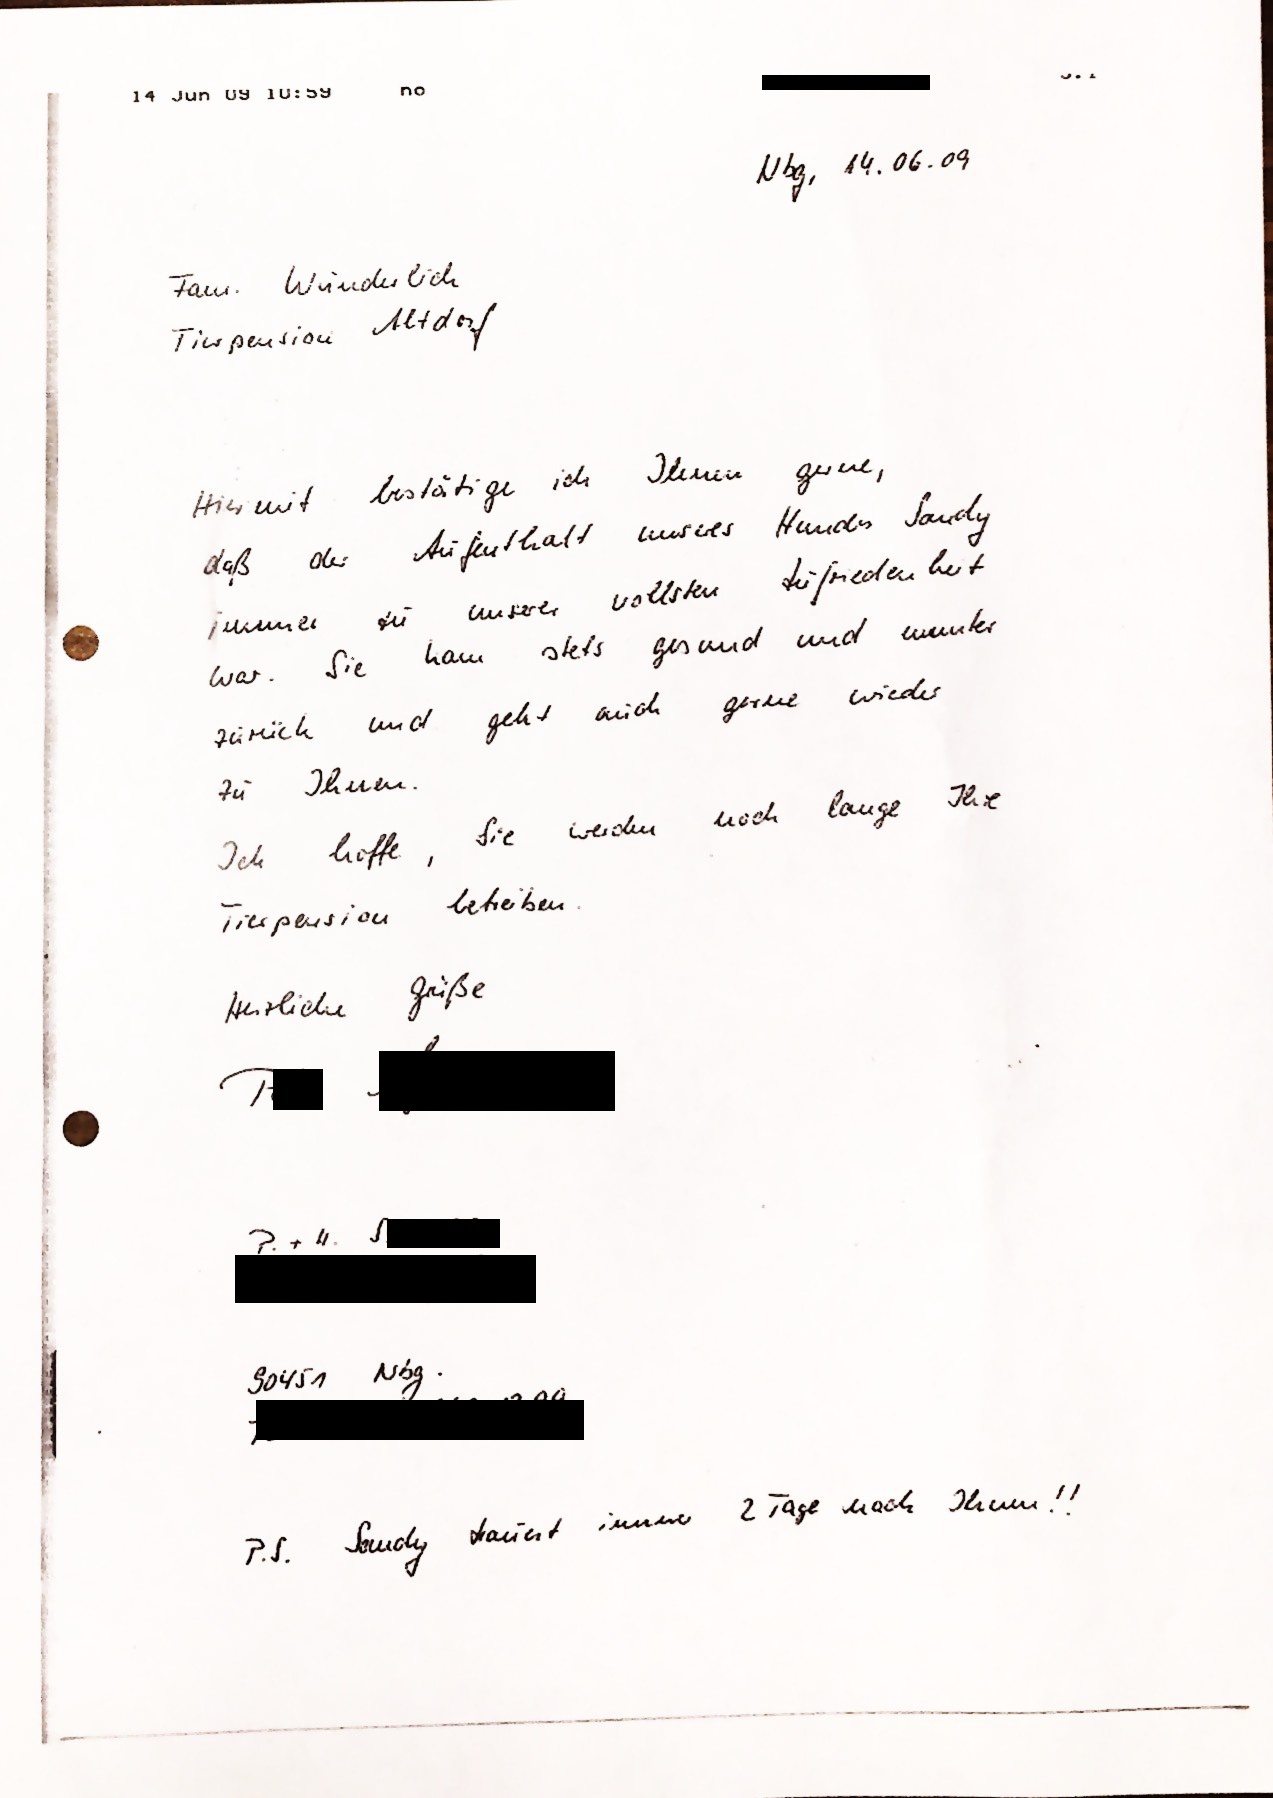 14 Jun 09 10:59 no S.1
Nbg, 14.06.09
Fam. Wunderlich
Tierpension Altdorf
Hiermit bestätige ich Ihnen gerne,
daß der Aufenthalt unseres Hundes Sandy
immer zu unserer vollsten Zufriedenheit
war. Sie kam stets gesund und munter
zurück und geht auch gerne wieder
zu Ihnen.
Ich hoffe, Sie werden noch lange Ihre
Tierpension betreiben.
Herzliche Grüße
P. + H. S
90451 Nbg.
P.S. Sandy trauert immer 2 Tage nach Ihnen!!